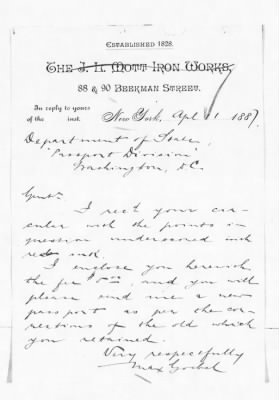 ESTABLISHED 1828.
THE J. L. MOTT IRON WORKS,
88 & 90 BEEKMAN STREET.
In reply to yours
of the inst.
New York, Apl 1 1887.
Department of State,
Passport Division
Washington, D.C.
Gents.
I rec'd your cir-
cular with the points in
question underscored with
red ink.
I enclose you herewith
the fee $5.00, and you will
please send me a new
passport as per the cor-
rections of the old which
you retained.
Very respectfully
Max Goebel